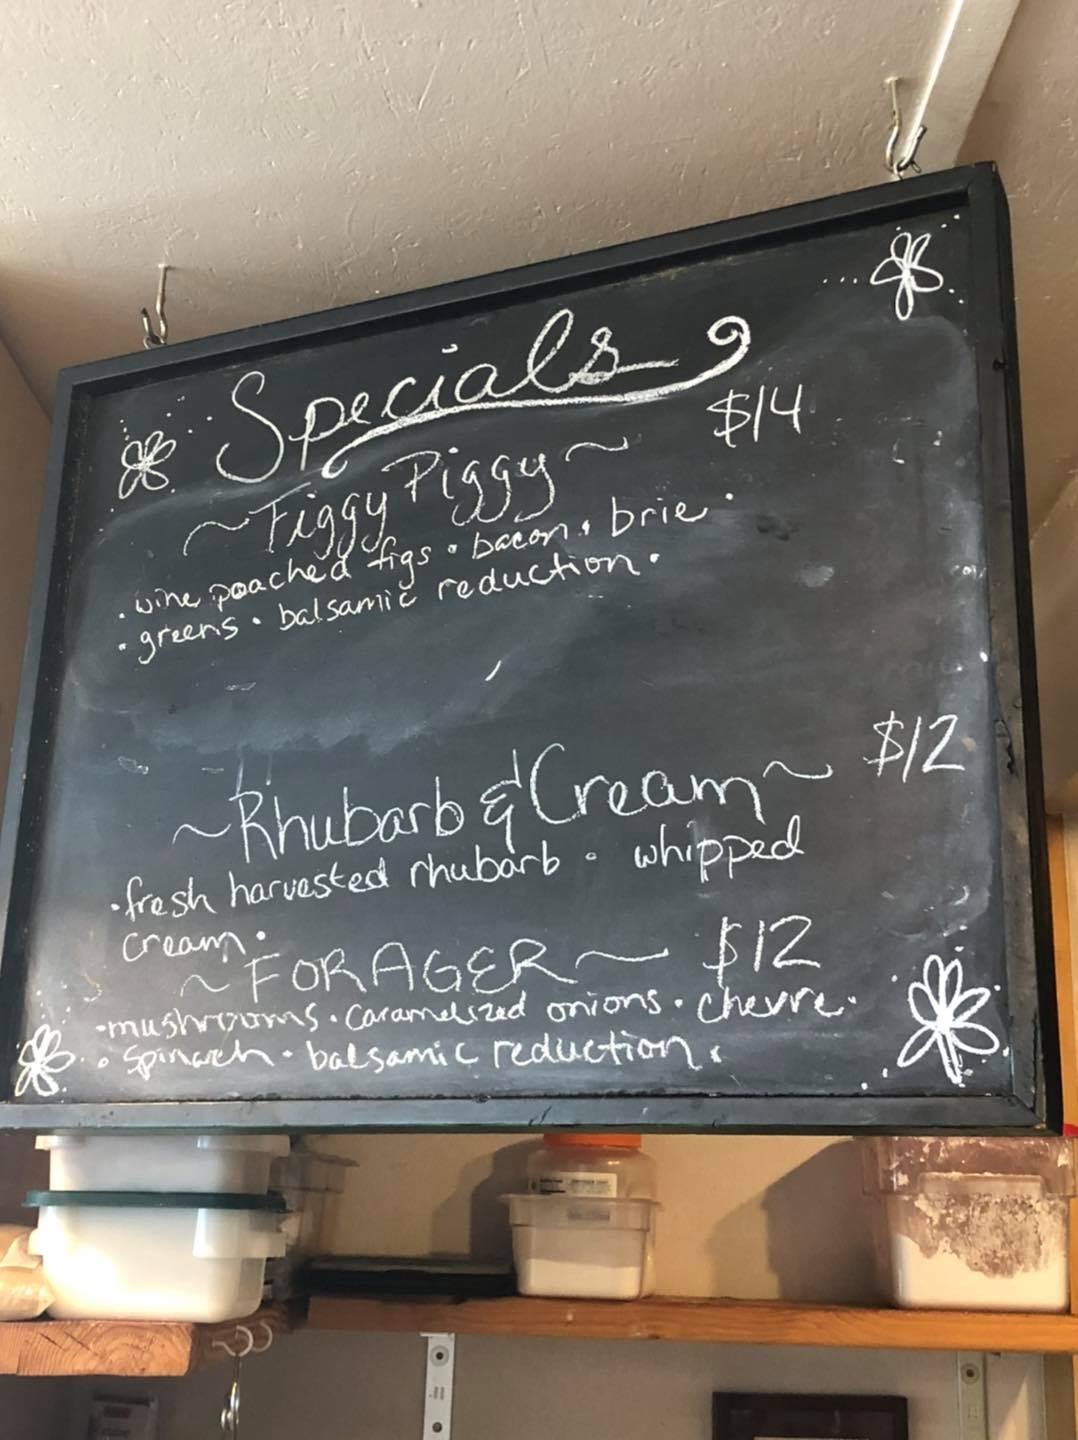 Specials
~Figgy Piggy~ $14
• wine poached figs • bacon • brie •
• greens • balsamic reduction •
~Rhubarb & Cream~ $12
• fresh harvested rhubarb • whipped
cream •
~FORAGER~ $12
• mushrooms • caramelized onions • chevre •
• spinach • balsamic reduction •